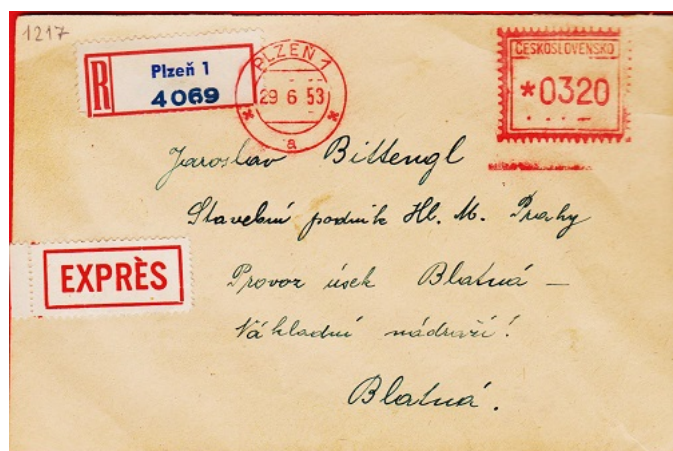 1217
R
Plzeň 1
4069
PLZEŇ 1
29 6 53
a
ČESKOSLOVENSKO
*0320
Jaroslav Bittengl
Stavební podnik Hl. M. Prahy
EXPRÈS
Provoz úsek Blatná –
Nákladní nádraží!
Blatná.